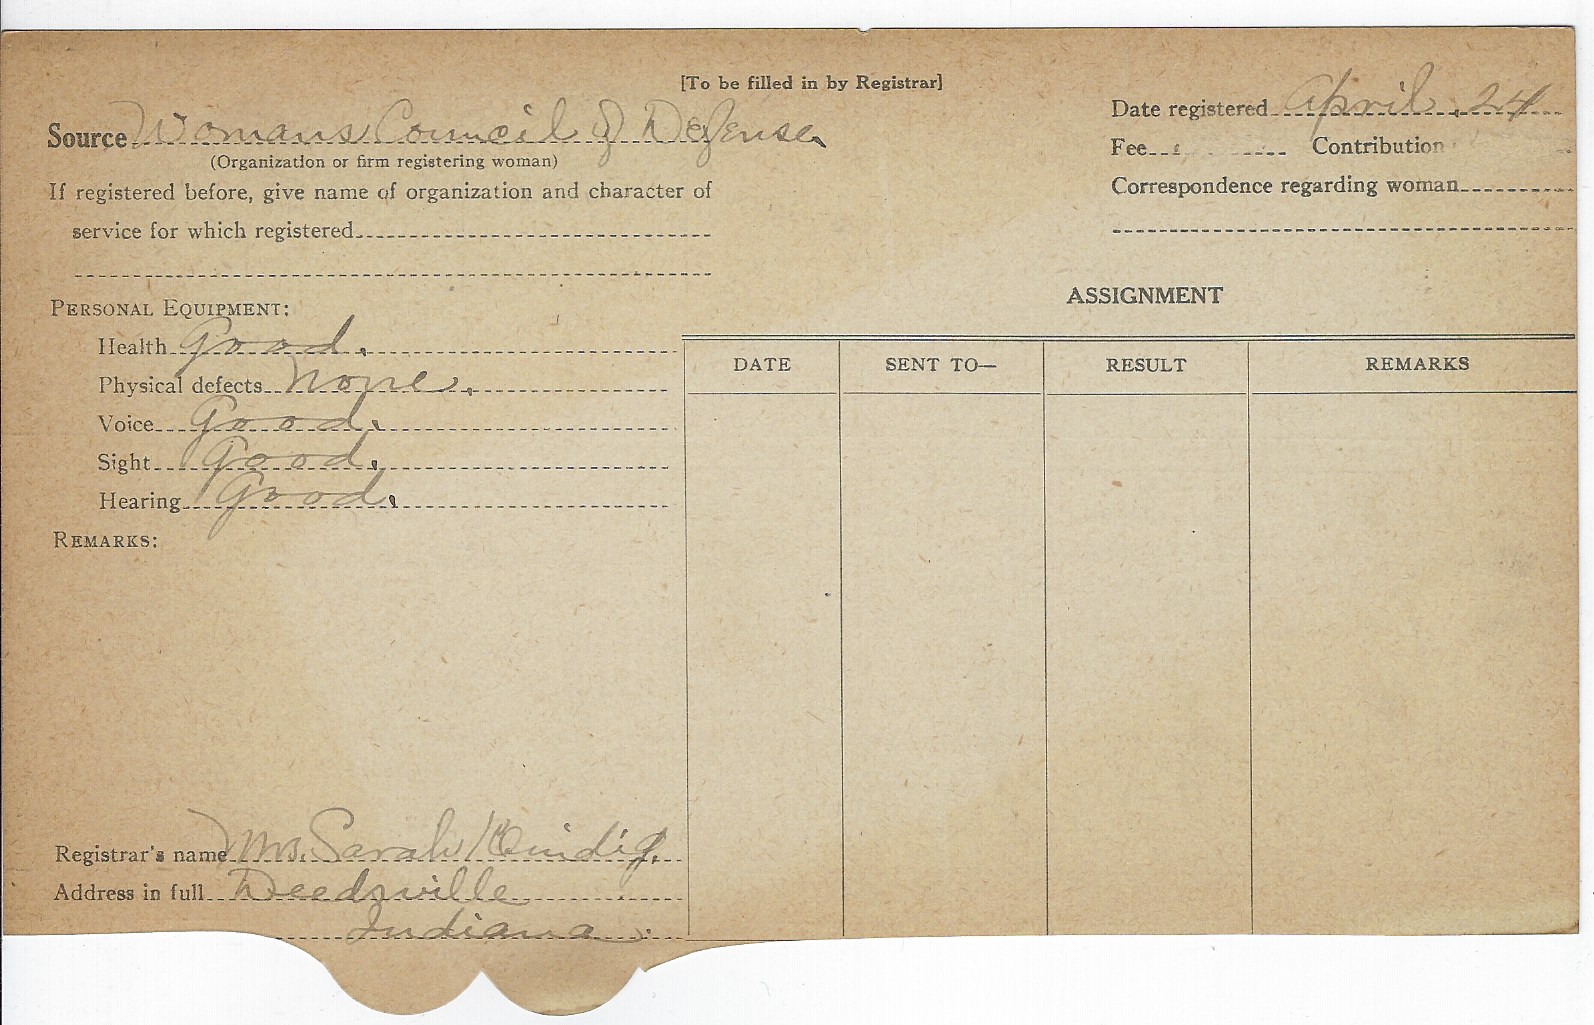 [To be filled in by Registrar]
Source Womans Council of Defense
(Organization or firm registering woman)
If registered before, give name of organization and character of
service for which registered
Date registered April 24
Fee Contribution
Correspondence regarding woman
PERSONAL EQUIPMENT:
Health Good.
Physical defects None.
Voice Good.
Sight Good.
Hearing Good.
REMARKS:
ASSIGNMENT
DATE SENT TO— RESULT REMARKS
Registrar's name Mrs. Sarah Kindig.
Address in full Deedsville
Indiana.